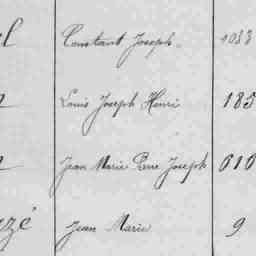 Constant Joseph 1038
Louis Joseph Henri 183
Jean Marie Pierre Joseph 616
zé Jean Marie 9